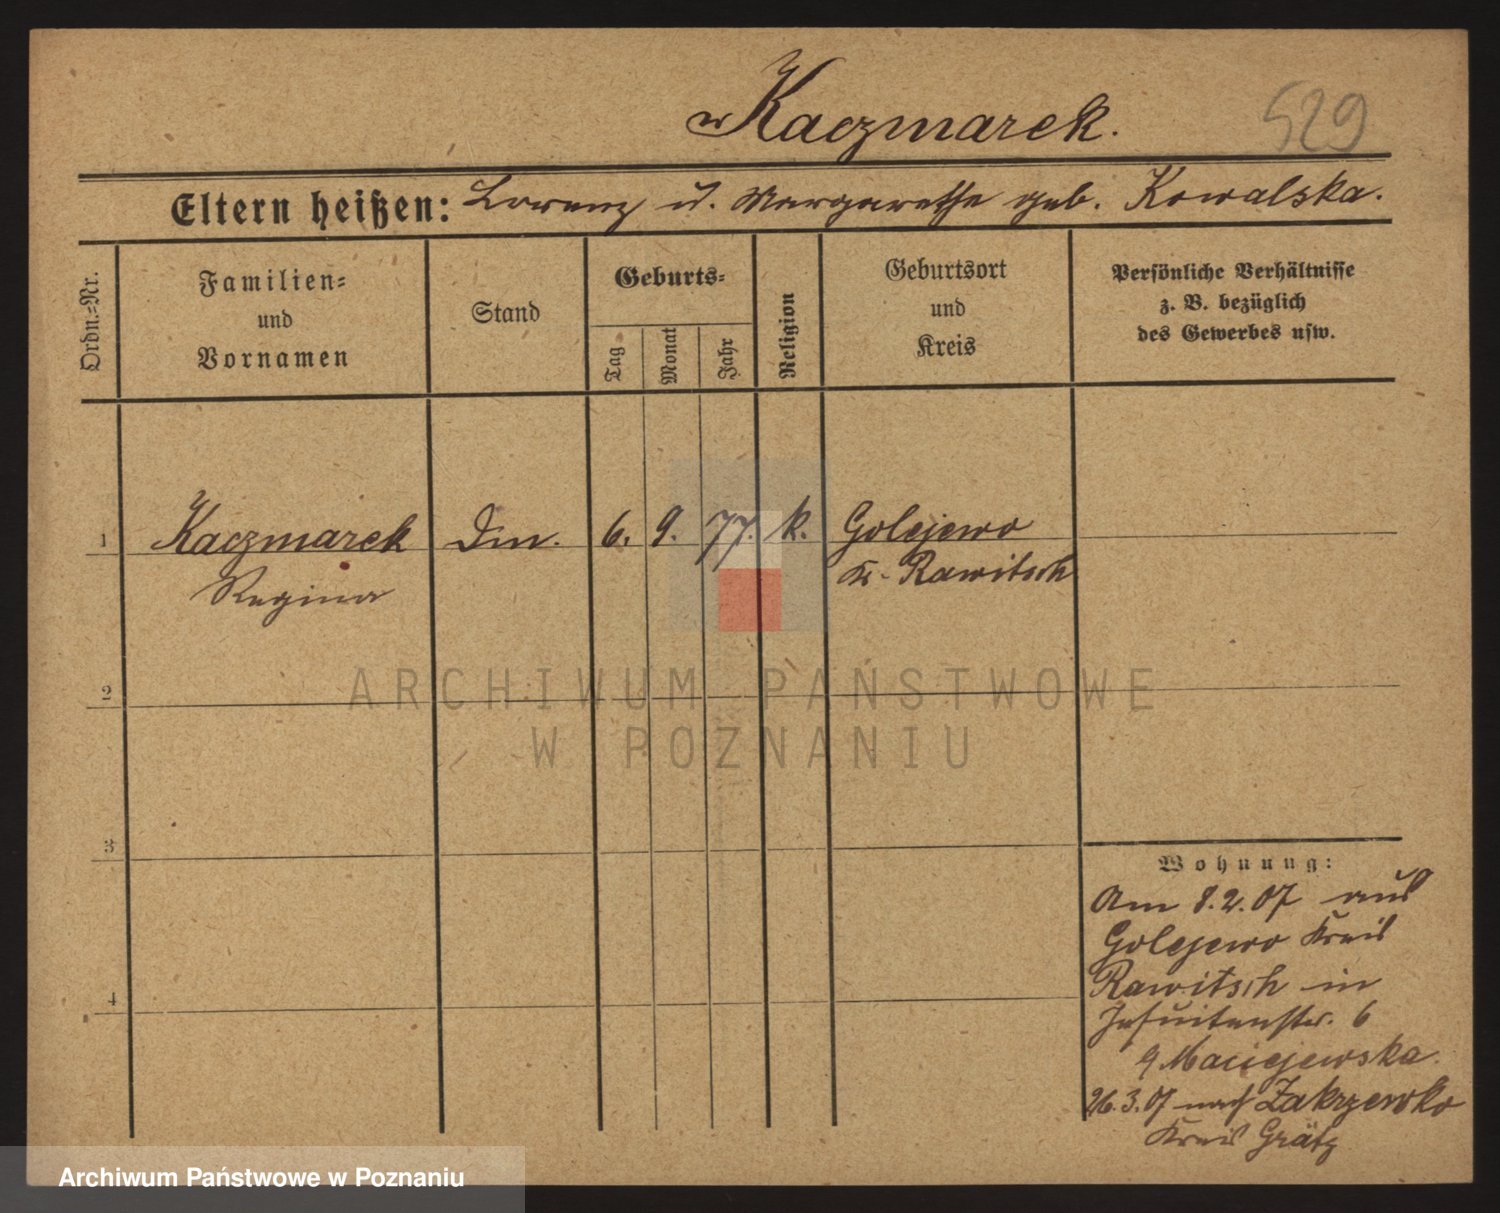 Kaczmarek.
529
Eltern heißen: Lorenz u. Margarethe geb. Kowalska.
Ordn.-Nr.
Familien-
und
Vornamen
Stand
Geburts-
Tag
Monat
Jahr
Religion
Geburtsort
und
Kreis
Persönliche Verhältnisse
z. B. bezüglich
des Gewerbes usw.
1 Kaczmarek Dm. 6. 9. 77. k. Golejewo
Regina Kr. Rawitsch
2
3
4
Wohnung:
Am 8.2.07 aus
Golejewo Kreis
Rawitsch in
Jesuitenstr. 6
Maciejewska.
26.3.07 nach Zakrzewko
Kreis Grätz
ARCHIWUM PAŃSTWOWE
W POZNANIU
Archiwum Państwowe w Poznaniu